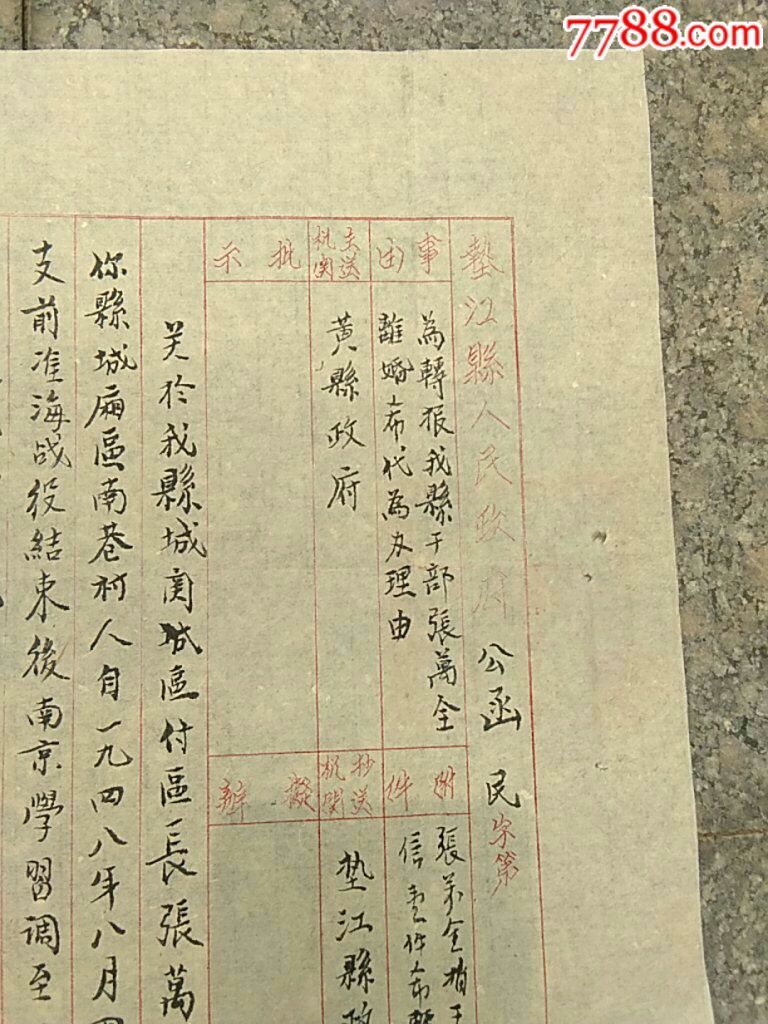 7788.com
墊江縣人民政府 公函 民字第
事由
為轉报我縣干部張萬全
離婚希代為办理由
附件
張萬全
信壹件希轉
主送机関
黃縣政府
抄送机関
垫江縣政
批示
擬辦
关於我縣城関城區付區長張萬
你縣城廂區南巷村人自一九四八年八月
支前淮海战役結束後南京學習调至